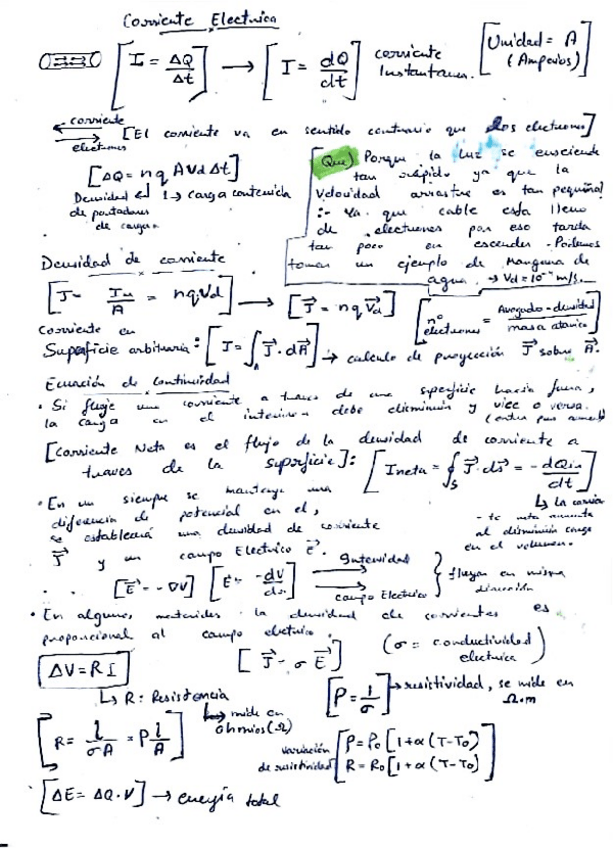 Corriente Electrica
[I = ΔQ/Δt] → [I = dQ/dt] corriente instantanea. [Unidad = A (Amperios)]
← corriente
→ electrones
[El corriente va en sentido contrario que los electrones]
[ΔQ = nq A Vd Δt]
Densidad de portadores de cargas
↳ carga contenida
Que) Porque la luz se enciende
tan rápido ya que la
velocidad arrastre es tan pequeña?
:- Ya que cable esta lleno
de electrones por eso tarda
tan poco en encender. Podemos
tomar un ejemplo de Manguera de
agua. → Vd = 10⁻⁴ m/s.
Densidad de corriente
[J = I/A = nqVd] → [J⃗ = nq V⃗d]
[nº electrones = Avogadro · densidad / masa atomica]
Corriente en
Superficie arbitraria: [I = ∫_A J⃗ · dA⃗] → calculo de proyección J⃗ sobre A⃗.
Ecuación de continuidad
• Si fluje una corriente a traves de una superficie hacia fuera,
la carga en el interior debe disminuir y vice o versa.
[corriente Neta es el flujo de la densidad de corriente a
traves de la superficie]: [Ineta = ∮_S J⃗ · ds⃗ = - dQin/dt]
• En un siempre se mantenge una
diferencia de potencial en el,
se establecerá una densidad de corriente
J⃗ y un campo Electrico E⃗.
↳ La
- te neta aumenta
al disminuir carga
en el volumen.
[E⃗ = -∇V] [E = -dV/ds]
→ Intensidad
→ campo Electrico
} fluyen en misma
dirección
• En algunos materiales la densidad de corrientes es
proporcional al campo electrico.
[J⃗ = σ E⃗]
(σ = conductividad electrica)
ΔV = R I
↳ R: Resistencia
↳ mide en
ohmios (Ω)
[ρ = 1/σ] → resistividad, se mide en
Ω·m
[R = l/σA = ρ l/A]
variación
de resistividad
[ρ = ρ₀ [1+α(T-T₀)]
R = R₀ [1+α(T-T₀)]]
[ΔE = ΔQ · V] → energía total